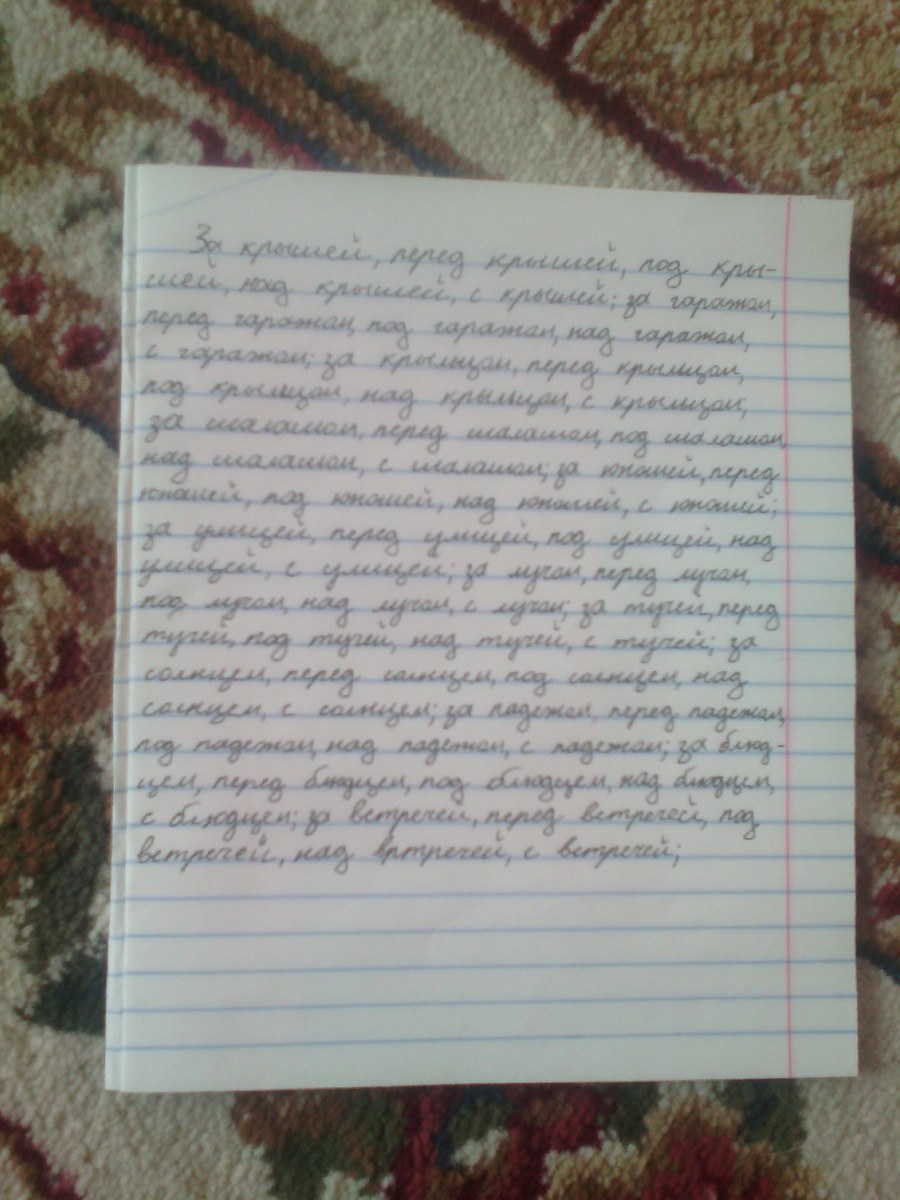 За крышей, перед крышей, под кры-
шей, над крышей, с крышей; за гаражом,
перед гаражом, под гаражом, над гаражом,
с гаражом; за крыльцом, перед крыльцом,
под крыльцом, над крыльцом, с крыльцом;
за шалашом, перед шалашом, под шалашом,
над шалашом, с шалашом; за юношей, перед
юношей, под юношей, над юношей, с юношей;
за улицей, перед улицей, под улицей, над
улицей, с улицей; за лучом, перед лучом,
под лучом, над лучом, с лучом; за тучей, перед
тучей, под тучей, над тучей, с тучей; за
солнцем, перед солнцем, под солнцем, над
солнцем, с солнцем; за падежом, перед падежом,
под падежом, над падежом, с падежом; за блюд-
цем, перед блюдцем, под блюдцем, над блюдцем,
с блюдцем; за встречей, перед встречей, под
встречей, над вртречей, с встречей;